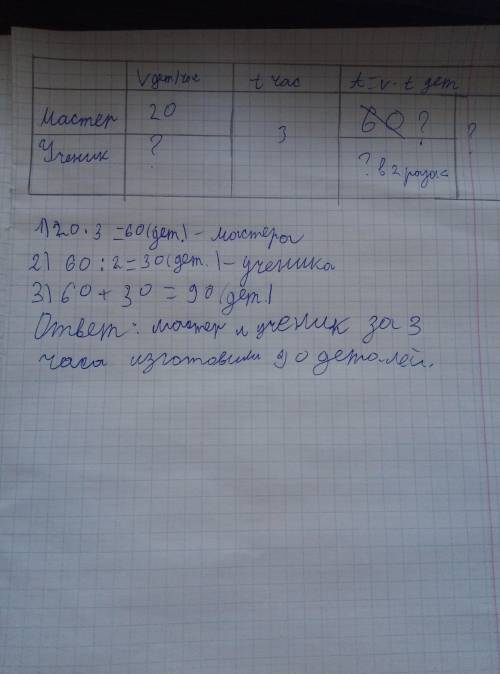 V дет/час t час t=v·t дет
Мастер 20 3 60 ? ?
Ученик ? ? в 2 раза<
1) 20·3=60(дет.) - мастера
2) 60:2=30(дет.) - ученика
3) 60+30=90(дет.)
Ответ: мастер и ученик за 3
часа изготовили 90 деталей.